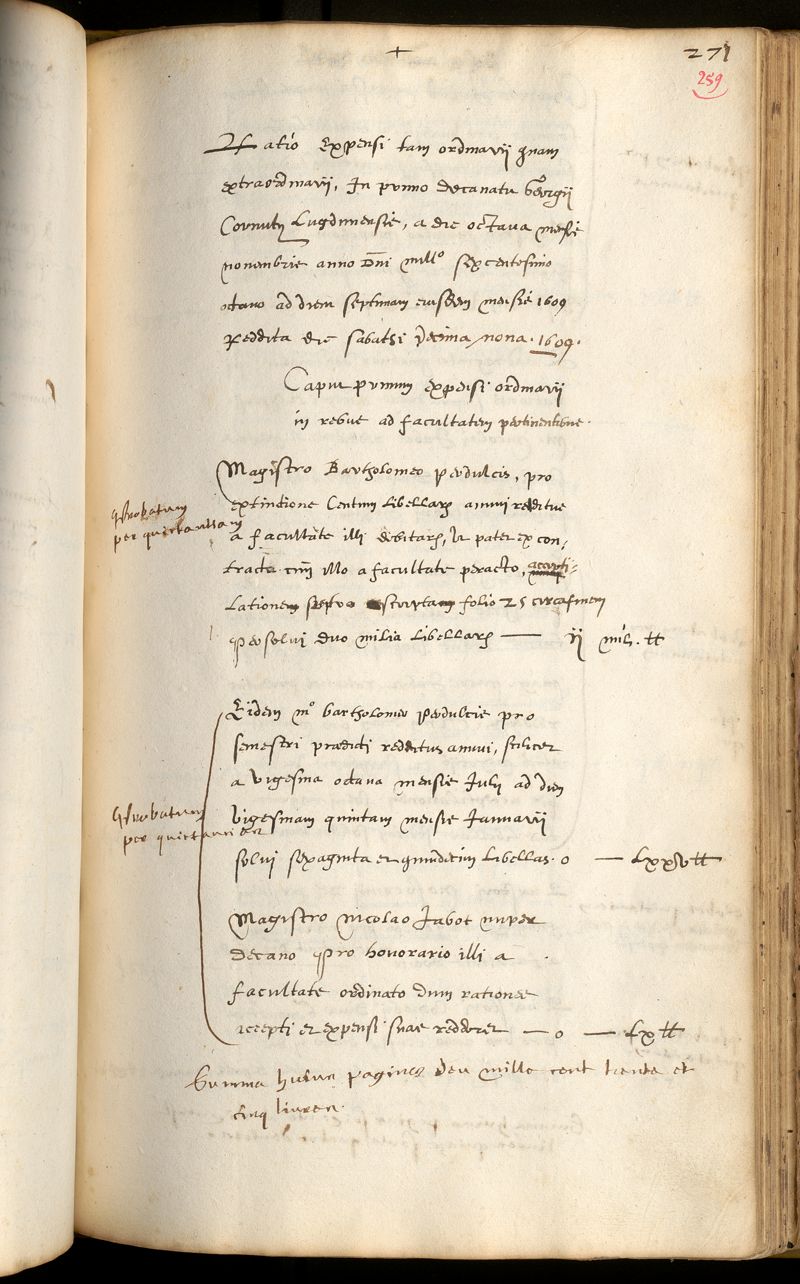 +
271
259
Ratio Expensi tam ordinarii quam
extraordinarii, In primo decanatu Georgii
Cornuti Lugdunensis, a die octava mensis
novembris anno Dni millo sexcentesimo
octavo ad diem septimam eiusdem mensis 1609
Reddita die sabathi decima nona . 1609.
Caput primum expensi ordinarii
in rebus ad facultatem pertinentibus.
Magistro Bartholomeo perdulcis, pro
extinctione Centum libellarum annui redditus
a facultate illi debitarum, ut patet ex con,
tractu cum illo a facultate peracto,
lationem scriptam folio 25 circa finem
persolvi duo milia libellarum — ii mil. ℔
probatum
per quittantiam
Eidem mo bartholomeo perdulcis pro
semestri praedicti redditus annui, scilicet
a vigesima octava mensis Julii ad diem
vigesimam quintam mensis Januarii
solvi sexaginta et quindecim libellas. o — Lxxv ℔
probatum
per quictantiam
Magistro nicolao Jabot nuper
decano pro honorario illi a
facultate ordinato dum rationes
accepti et expensi suae redderet — o — Lx ℔
Summa huius paginae deux mille cent trente et
cinq livres.